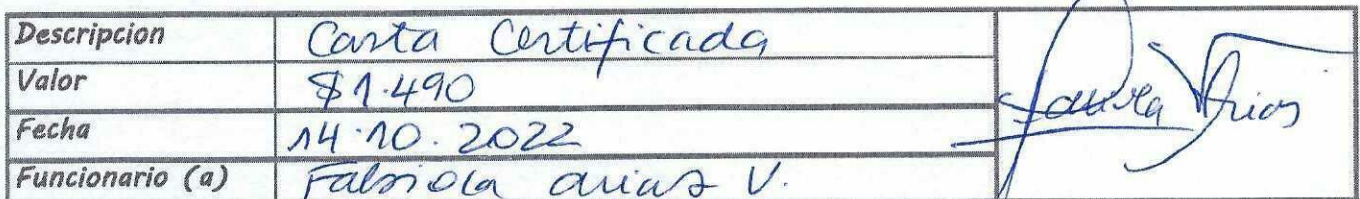 Descripcion Carta Certificada
Valor $1.490
Fecha 14.10.2022
Funcionario (a) Fabiola arias V.
Arias